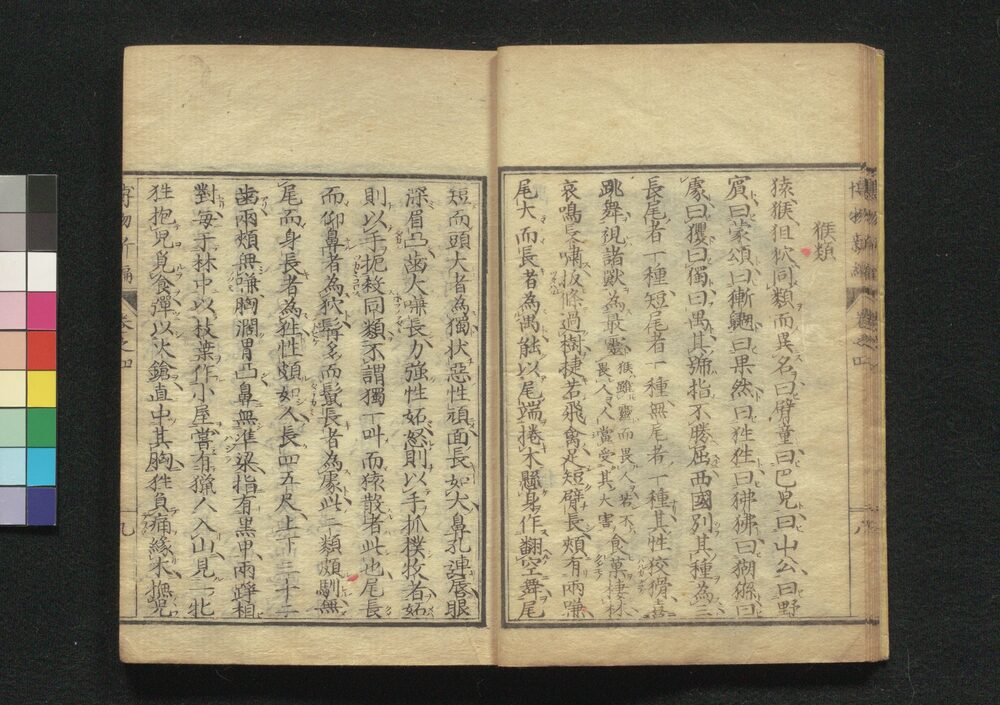 猴類
猿猴狙狖同類而異名曰臂童曰巴兒曰山公曰野
賓曰蒙頌曰獑𪕰曰果然曰狌狌曰狒狒曰猢猻曰
豦曰玃曰獨曰禺其號指不勝屈西國別其種爲三
長尾者一種短尾者一種無尾者一種其性狡猾喜
跳舞視諸獸爲最靈 猴雖靈而畏人若不畏人人當受其大害 食菓棲林
哀鳴長嘯扳條過樹捷若飛禽足短臂長頰有兩嗛
尾大而長者為禺能以尾端捲木懸身作翻空舞尾
短而頭大者為獨狀惡性頑面長如犬鼻孔連唇眼
深眉凸齒大嗛長力強性妬怒則以手抓撲牧者妬
則以手扼殺同類不謂獨一叫而猿散者此也尾長
而仰鼻者為狖髯多而鬣長者為豦此二類頗馴無
尾而身長者為狌性頗如人長四五尺上下三十二
齒兩頰無嗛胸濶胃凸鼻無準梁指有黑甲兩蹄相
對每于林中以枝葉作小屋嘗有猟人入山見一牝
狌抱兒覓食彈以火鎗直中其胸狌負痛緣木撫兒
博物新編 卷之四 九